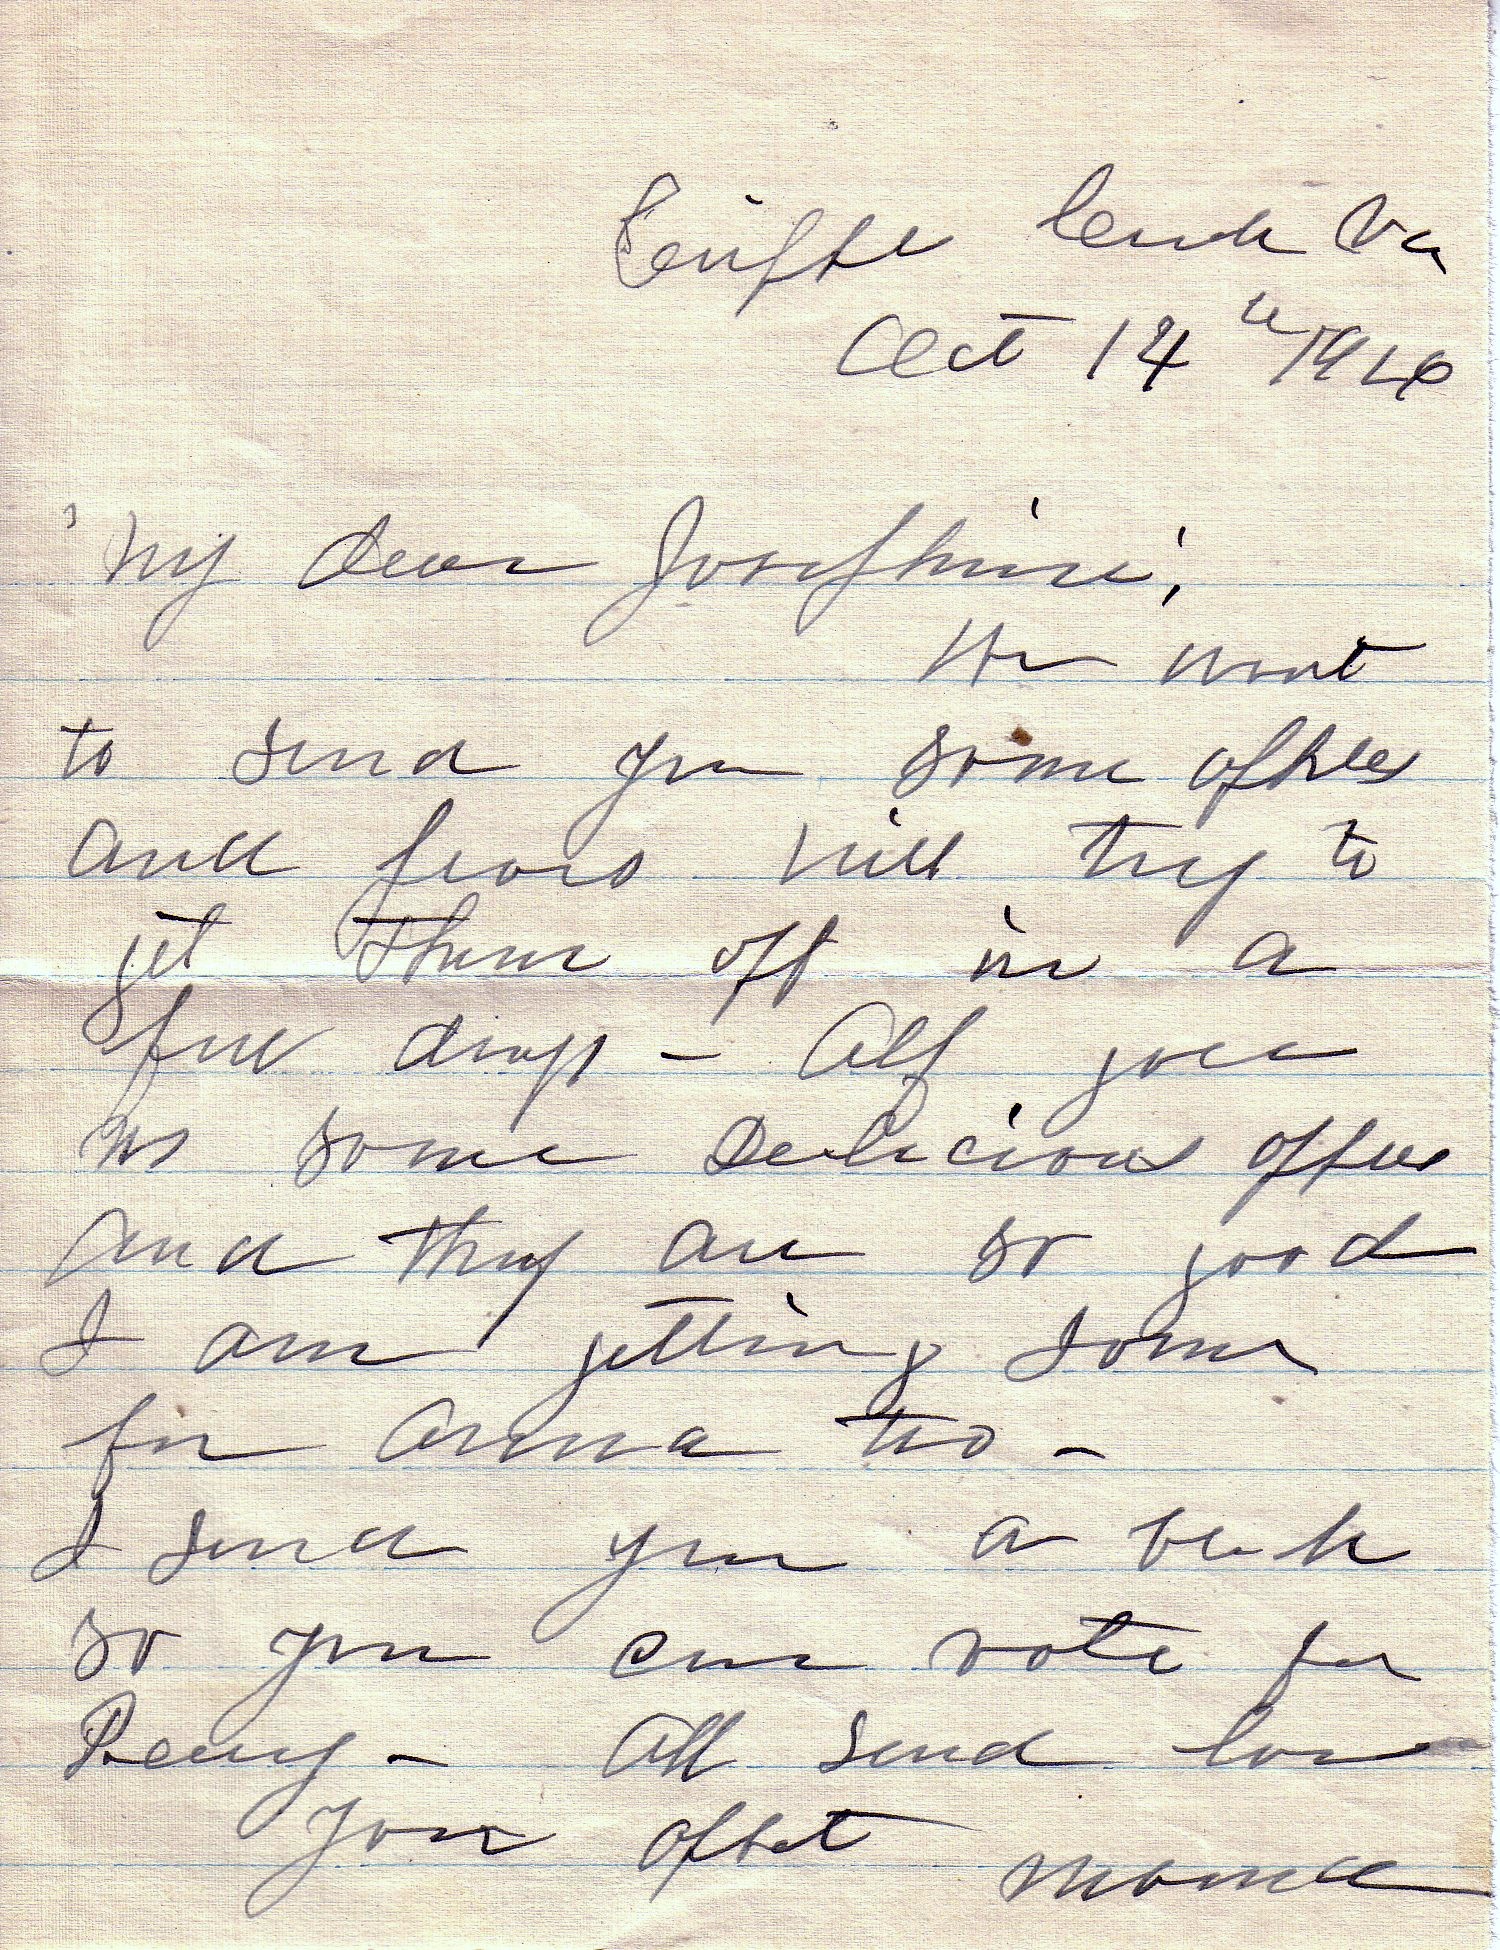 Va
Oct 14 " 19
My dear Josephine,
We want
to send you some apples
and pears will try to
get them off in a
few days – Alf gave
us some Delicious apples
and they are so good
I am getting some
for Anna too –
I send you a
so you can vote for
– All send love
Your affect Mamma